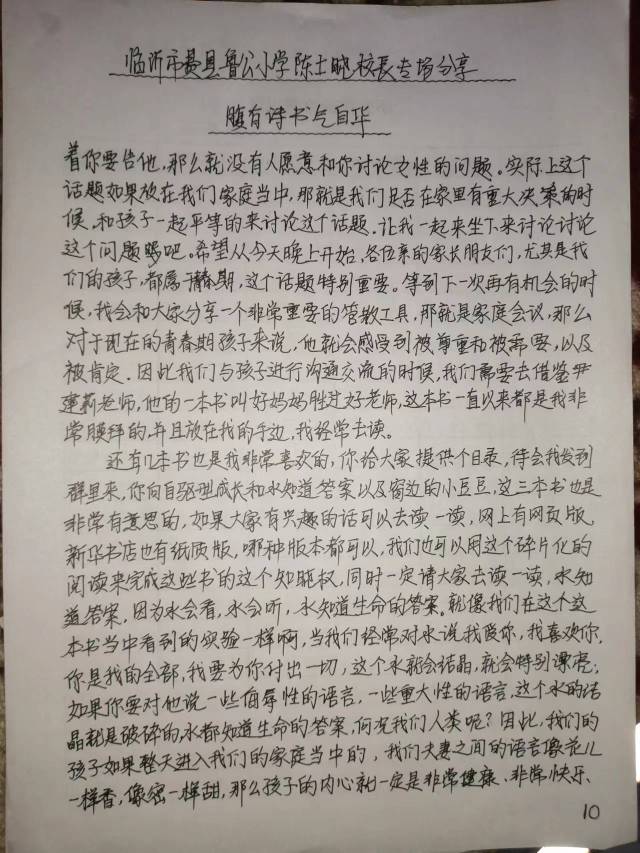 临沂市费县鲁公小学陈士晓校长专场分享
腹有诗书气自华
着你要告他，那么就没有人愿意和你讨论女性的问题。实际上这个
话题如果放在我们家庭当中，那就是我们是否在家里有重大决策的时
候，和孩子一起平等的来讨论这个话题。让我一起来坐下来讨论讨论
这个问题吧。希望从今天晚上开始，各位亲的家长朋友们，尤其是我
们的孩子，都属于青春期，这个话题特别重要。等到下一次再有机会的时
候，我会和大家分享一个非常重要的管教工具，那就是家庭会议，那么
对于现在的青春期孩子来说，他就会感受到被尊重和被需要，以及
被肯定。因此我们与孩子进行沟通交流的时候，我们需要去借鉴尹
建莉老师，他的一本书叫好妈妈胜过好老师，这本书一直以来都是我非
常膜拜的，并且放在我的手边，我经常去读。
还有几本书也是我非常喜欢的，你给大家提供个目录，待会我发到
群里来，你向自驱型成长和水知道答案以及窗边的小豆豆，这三本书也是
非常有意思的，如果大家有兴趣的话可以去读一读，网上有网页版，
新华书店也有纸质版，哪种版本都可以，我们也可以用这个碎片化的
阅读来完成这些书的这个知晓权，同时一定请大家去读一读，水知
道答案，因为水会看，水会听，水知道生命的答案。就像我们在这个这
本书当中看到的实验一样啊，当我们经常对水说我爱你，我喜欢你，
你是我的全部，我要为你付出一切，这个水就会结晶，就会特别漂亮；
如果你要对他说一些侮辱性的语言，一些重大性的语言，这个水的结
晶就是破碎的，水都知道生命的答案，何况我们人类呢？因此，我们的
孩子如果整天进入我们的家庭当中的，我们夫妻之间的语言像花儿
一样香，像密一样甜，那么孩子的内心就一定是非常健康、非常快乐、
10